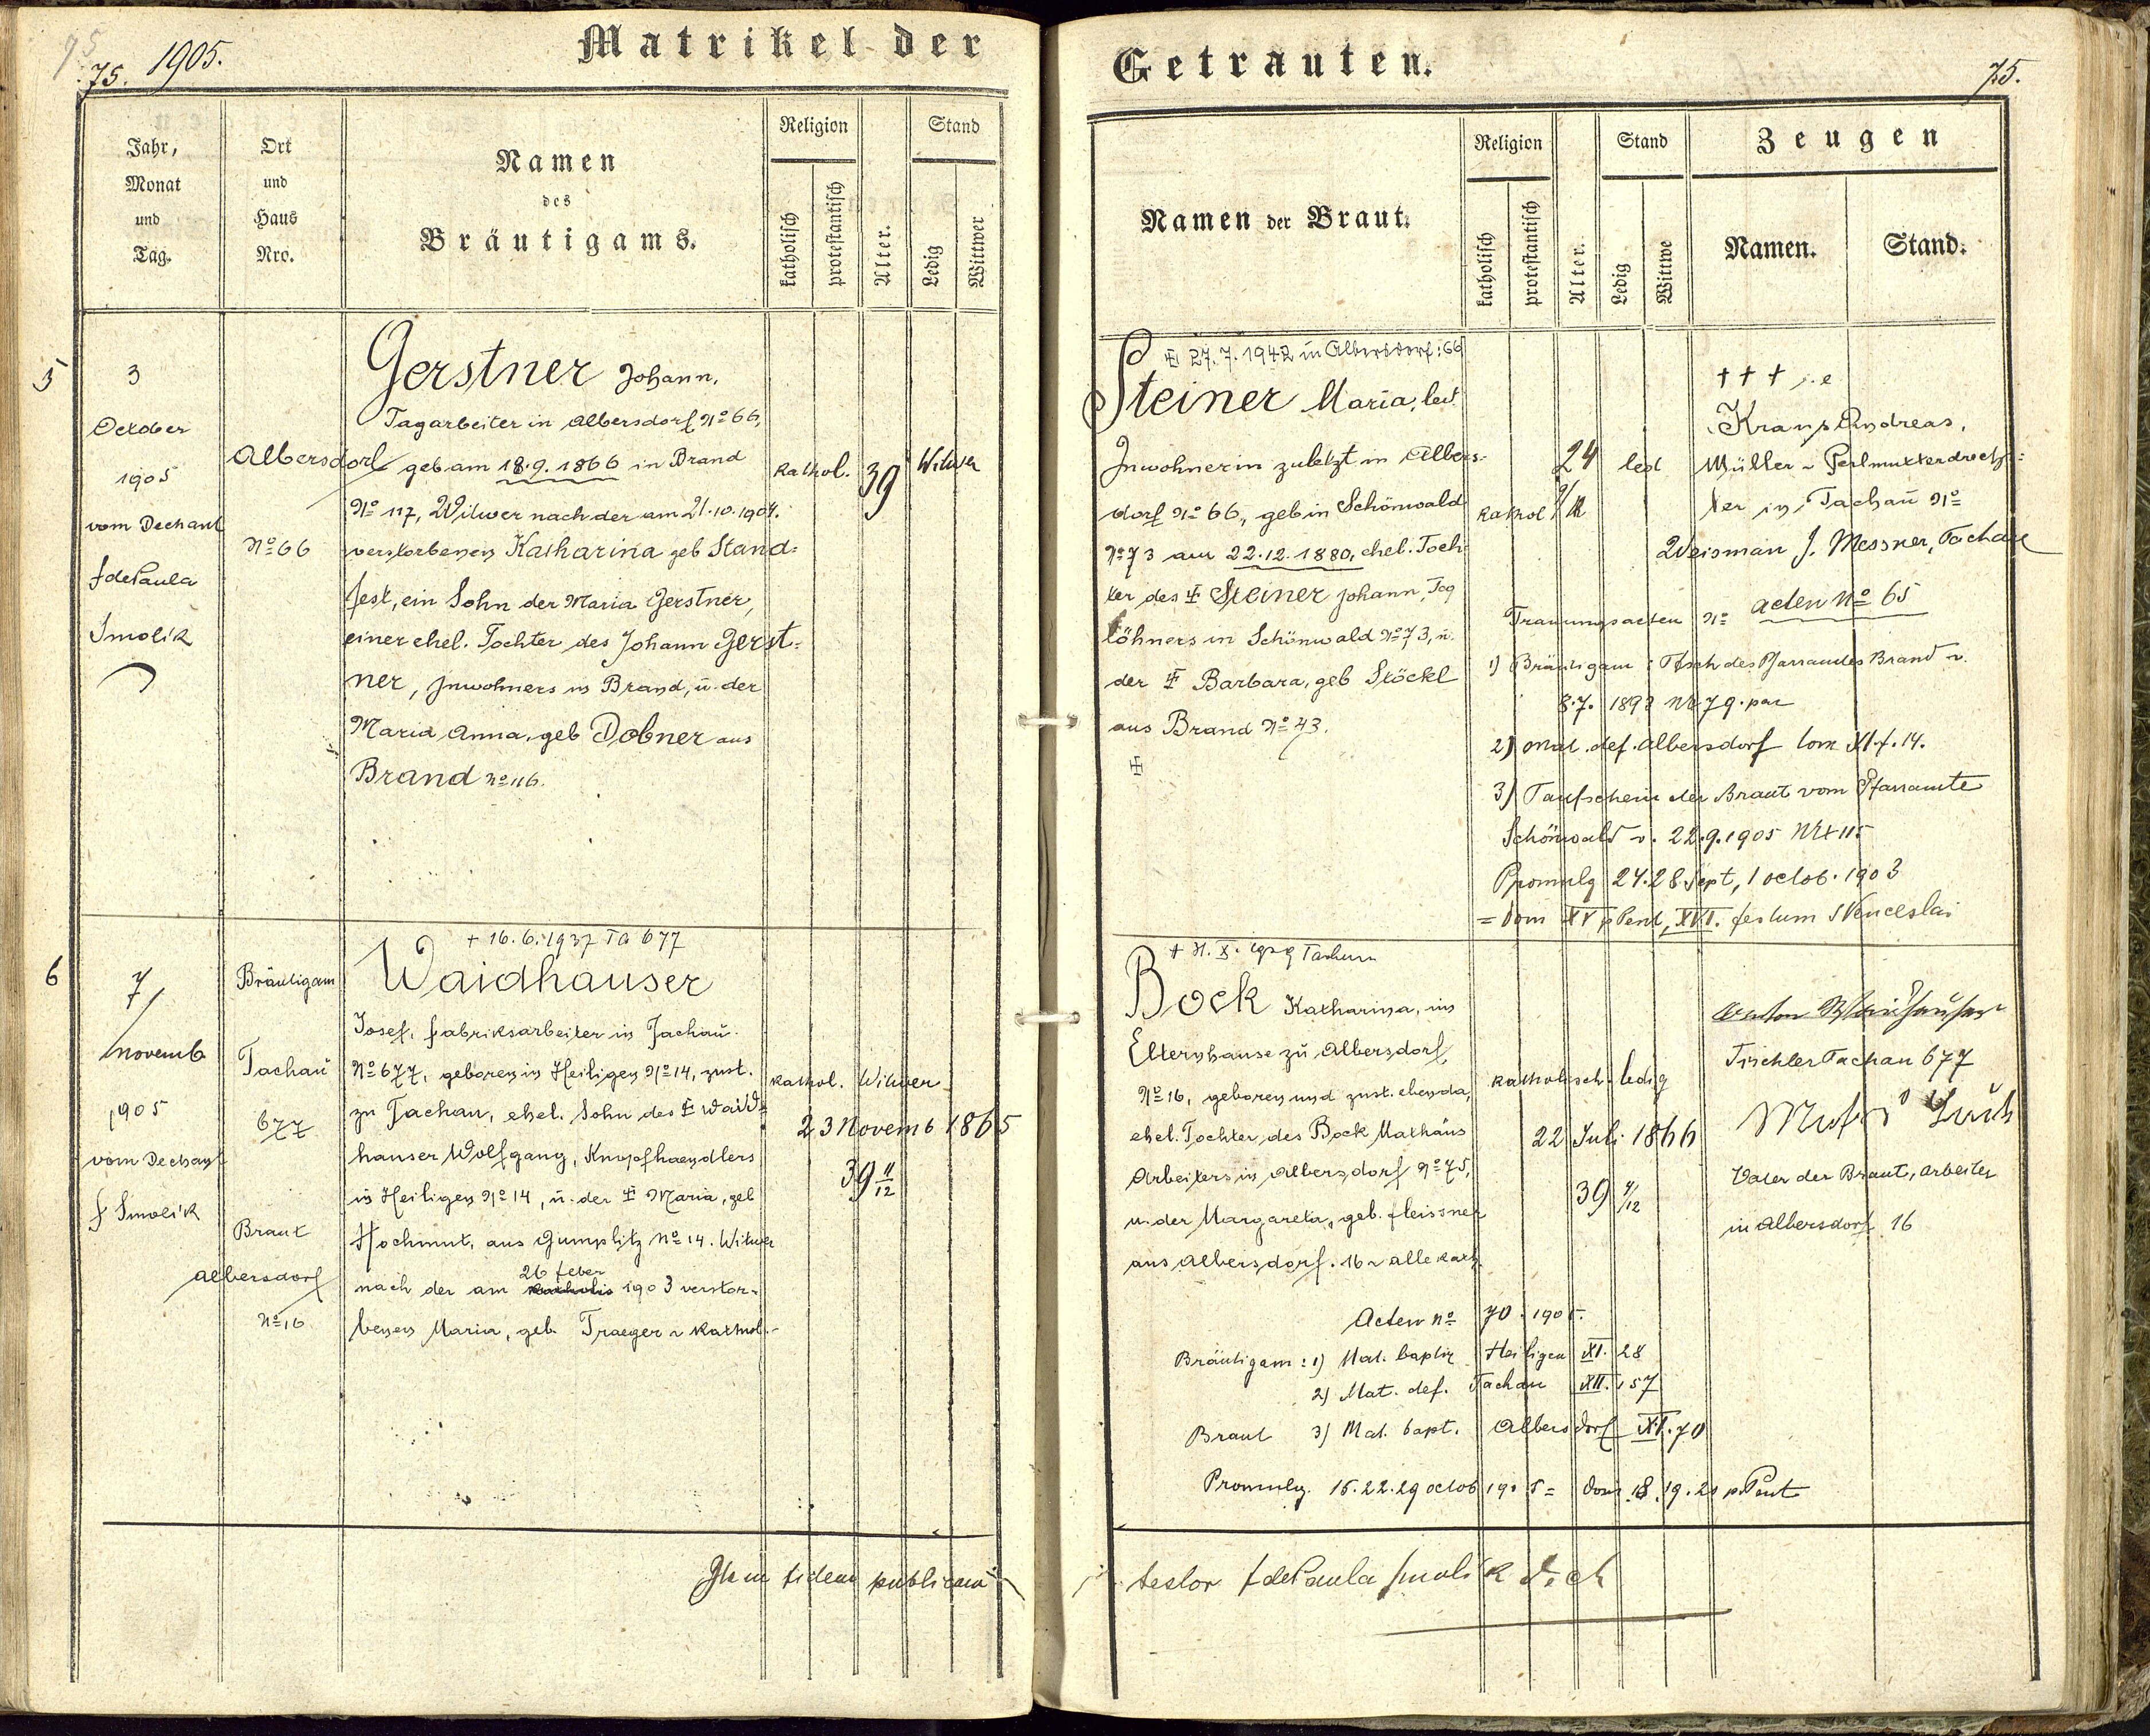 75. 1905.
Matrikel der
Jahr,
Monat
und
Tag.
Ort
und
Haus
Nro.
Namen
des
Bräutigams.
Religion
katholisch
protestantisch
Alter.
Stand
Ledig
Wittwer
5
3
October
1905
vom Dechant
f de Paula
Smolik
Albersdorf
No 66
Gerstner Johann,
Tagarbeiter in Albersdorf No 66,
geb am 18.9.1866 in Brand
No 117, Witwer nach der am 21.10.1904.
verstorbenen Katharina geb Stand=
fest, ein Sohn der Maria Gerstner,
einer ehel. Tochter des Johann Gerst=
ner, Inwohners in Brand, u. der
Maria Anna, geb Dobner aus
Brand No 116.
Kathol.
39
Witwer
6
7
Novemb
1905
vom Dechant
f Smolik
Bräutigam
Tachau
677
Braut
Albersdorf
No 16
+ 16.6.1937 Ta 677
Waidhauser
Josef, Fabriksarbeiter in Tachau
No 677, geboren in Heiligen No 14, zust.
zu Tachau, ehel. Sohn des Waid=
hauser Wolfgang, Knopfhaendlers
in Heiligen No 14, u. der Maria, geb
Hochmut, aus Gumplitz No 14. Witwer
26 feber
nach der am 1903 verstor=
benen Maria, geb. Traeger Kathol.
Kathol. Witwer
23 Novemb 1865
39 11/12
fidem publicam
Getrauten.
75.
Namen der Braut.
Religion
katholisch
protestantisch
Alter.
Stand
Ledig
Wittwe
Zeugen
Namen.
Stand.
27.7.1942 in Albersdorf: 66
Steiner Maria, led.
Inwohnerin zuletzt in Albers=
dorf No 66, geb in Schönwald
No 73 am 22.12.1880, ehel. Toch=
ter des Steiner Johann, Tag
löhners in Schönwald No 73, u.
der Barbara, geb Stöckl
aus Brand No 43.
Kathol
24
led
+ + +
Andreas,
Müller Perlmutterdrechs=
ler in Tachau No
J. Messner, Tachau
Trauungsacten No Acten No 65
1) Bräutigam: Tfsch des Pfarramtes Brand v.
2) Mat. def. Albersdorf tom XI. f. 14.
3) Taufschein der Braut vom Pfarramte
Schönwald v. 22.9.1905 115
Promulg 24.28 Sept, 1 octob. 1903
= Dom XV p Pent, XVI. festum S Venceslai
Bock Katharina, im
Elternhause zu Albersdorf
No 16, geboren und zust. ebenda,
ehel. Tochter des Bock Mathäus
Arbeiters in Albersdorf No 75,
u. der Margareta, geb. Fleissner
aus Albersdorf. 16 alle kath.
katholisch. ledig
22 Juli 1866
39
Tischler Tachau 677
Vater der Braut, Arbeiter
in Albersdorf 16
Acten No 70. 1905.
Bräutigam: 1) Mat. baptiz Heiligen XI. 28
2) Mat. def. Tachau XII. 157
Braut 3) Mat. bapt. Albersdorf XI. 70
Promulg. 15.22.29 octob 1905 = dom 18. 19. 20 p. Pent
testor f de Paula Smolik